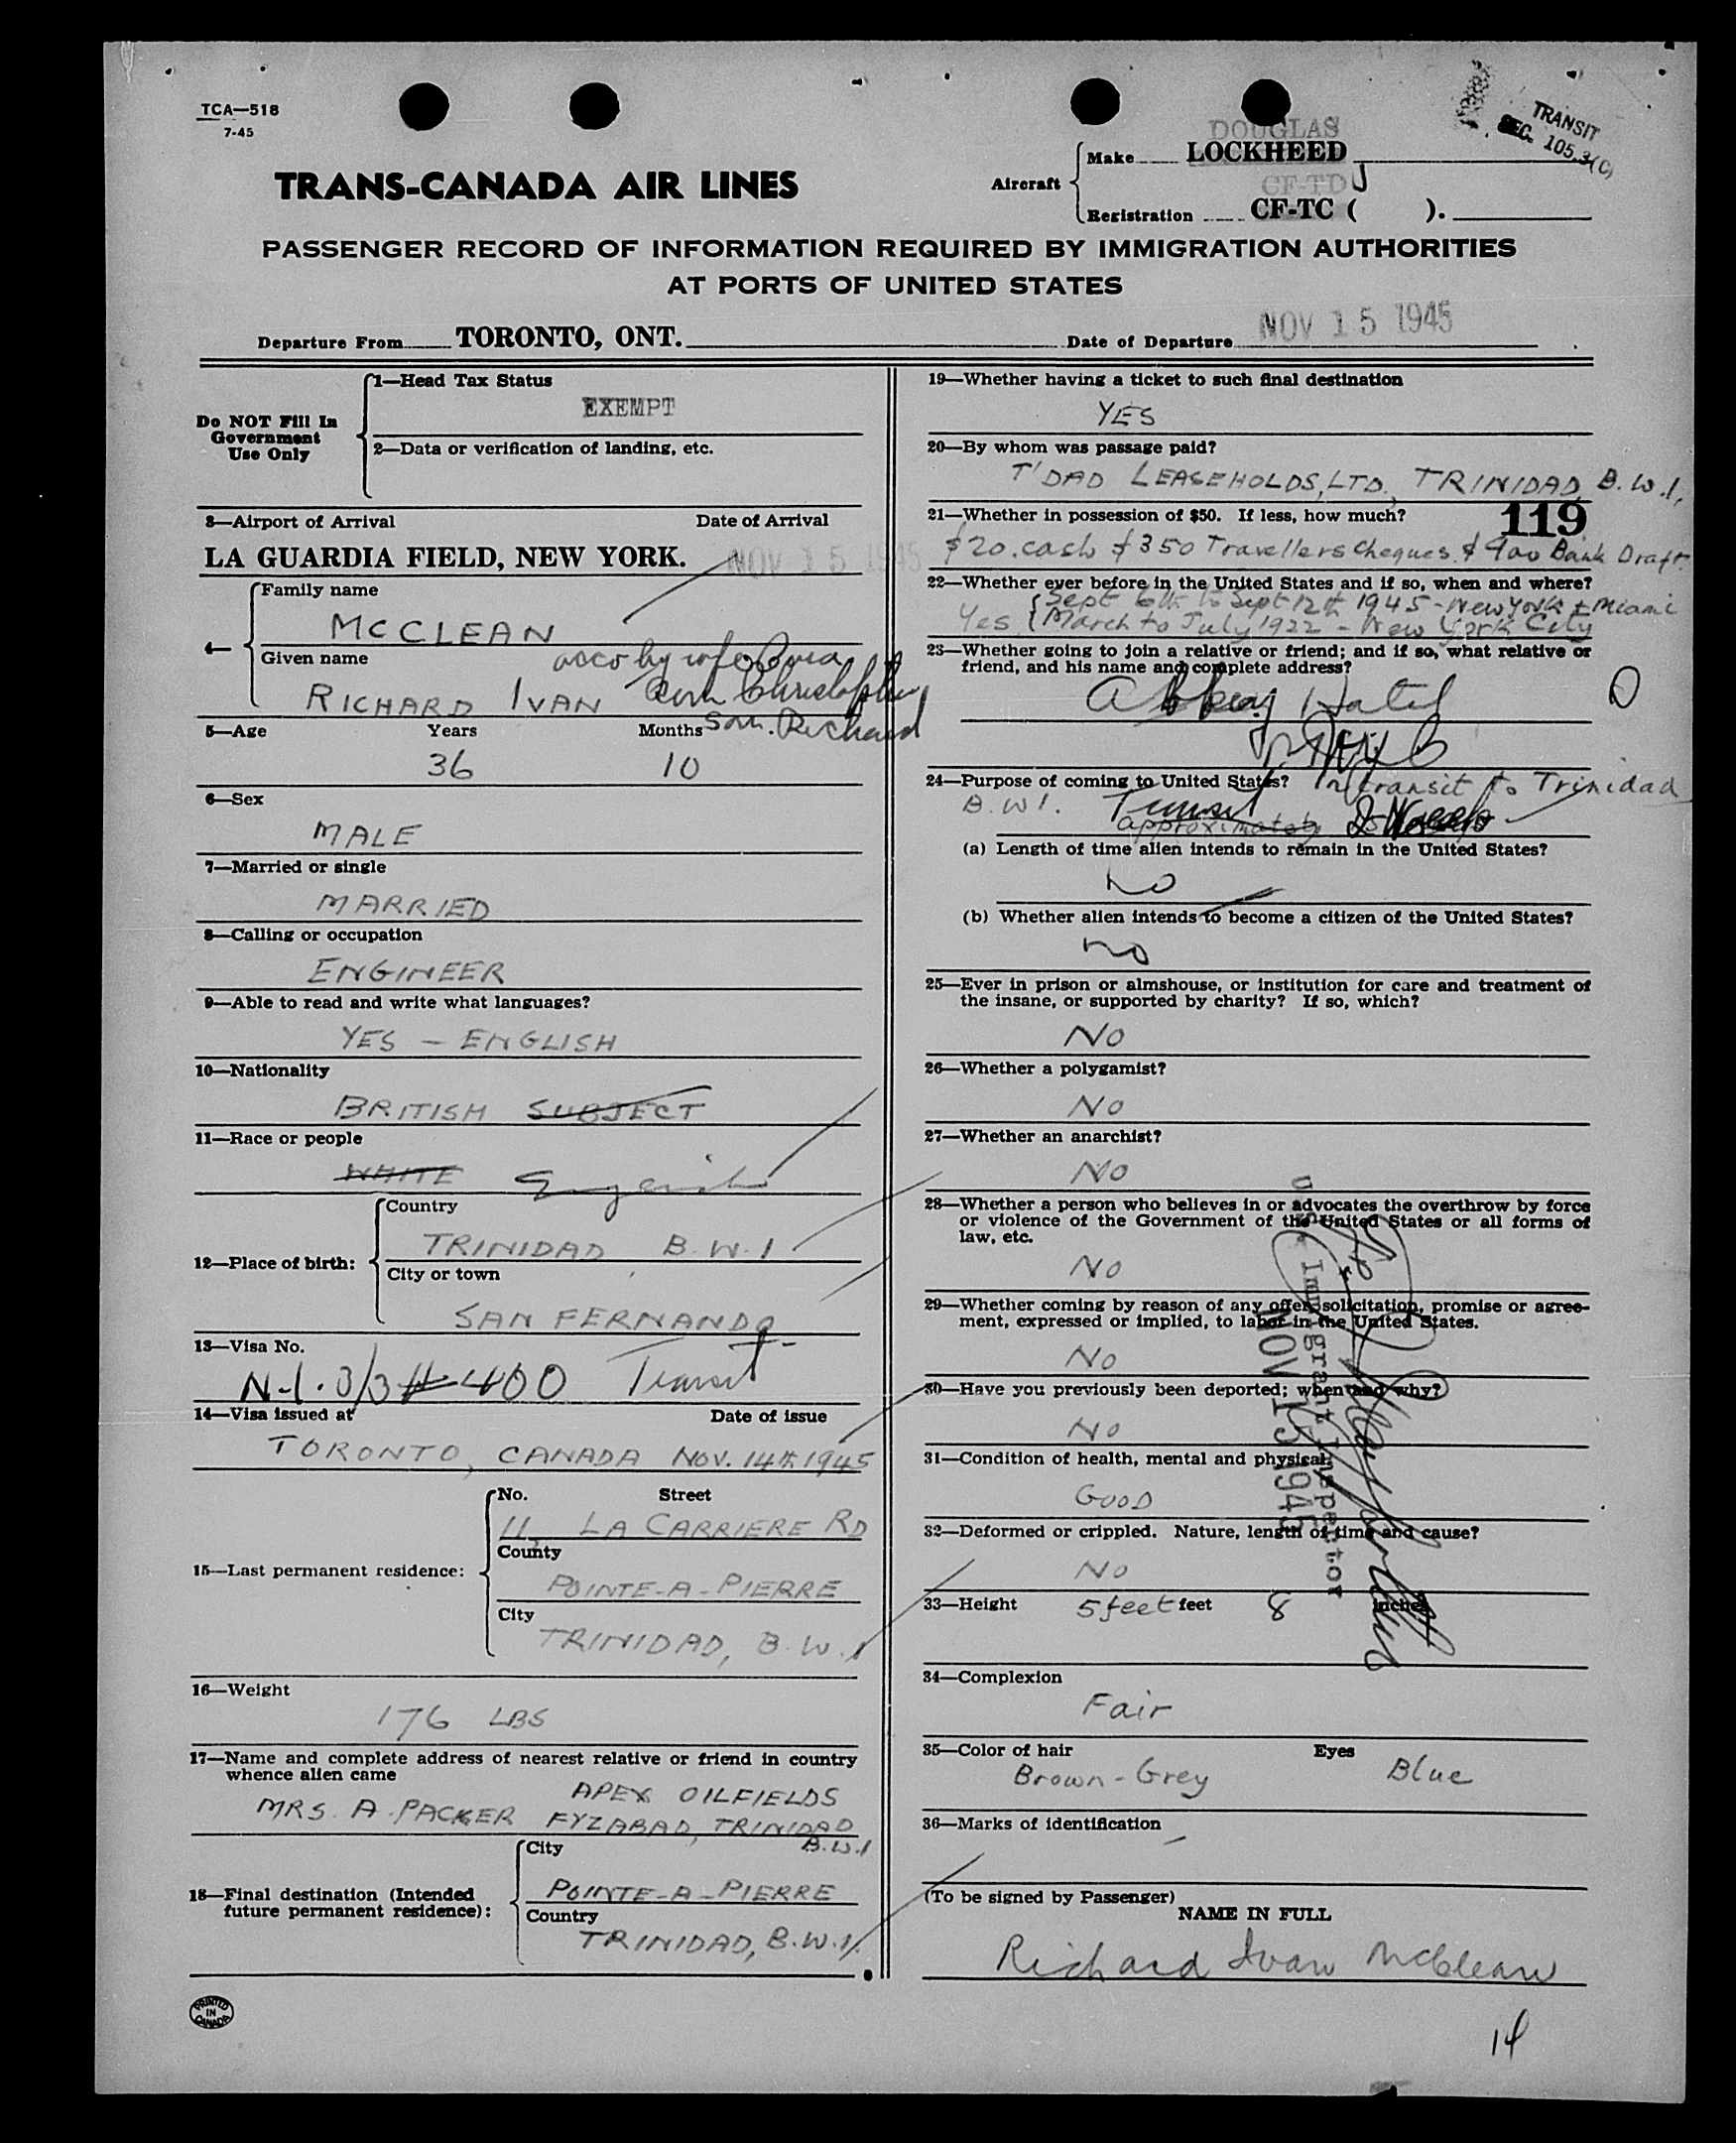 TCA—518
7-45
TRANSIT
SEC. 105.3(C)
DOUGLAS
Make LOCKHEED
Aircraft
CF-TD J
Registration CF-TC ( ).
TRANS-CANADA AIR LINES
PASSENGER RECORD OF INFORMATION REQUIRED BY IMMIGRATION AUTHORITIES
AT PORTS OF UNITED STATES
Departure From TORONTO, ONT. Date of Departure NOV 15 1945
Do NOT Fill In
Government
Use Only
1—Head Tax Status
EXEMPT
2—Data or verification of landing, etc.
3—Airport of Arrival Date of Arrival
LA GUARDIA FIELD, NEW YORK. NOV 15 1945
4—
Family name
MCCLEAN
Given name
acco by wife
RICHARD IVAN Christopher
son. Richard
5—Age Years Months
36 10
6—Sex
MALE
7—Married or single
MARRIED
8—Calling or occupation
ENGINEER
9—Able to read and write what languages?
YES — ENGLISH
10—Nationality
BRITISH SUBJECT
11—Race or people
WHITE English
12—Place of birth:
Country
TRINIDAD B.W.I
City or town
SAN FERNANDO
13—Visa No.
Transit
14—Visa issued at Date of issue
TORONTO, CANADA NOV. 14th 1945
15—Last permanent residence:
No. Street
11, LA CARRIERE RD
County
POINTE-A-PIERRE
City
TRINIDAD, B.W.I
16—Weight
176 LBS
17—Name and complete address of nearest relative or friend in country
whence alien came
APEX OILFIELDS
MRS. A. PACKER FYZABAD, TRINIDAD
B.W.I
18—Final destination (Intended
future permanent residence):
City
POINTE-A-PIERRE
Country
TRINIDAD, B.W.I.
PRINTED
IN
CANADA
19—Whether having a ticket to such final destination
YES
20—By whom was passage paid?
T'DAD LEASEHOLDS, LTD., TRINIDAD, B.W.I.
21—Whether in possession of $50. If less, how much?
119
$20. cash $350 Travellers Cheques $900 Bank Draft
22—Whether ever before in the United States and if so, when and where?
Sept 6th to Sept 12th 1945 - New York & Miami
Yes { March to July 1922 - New York City
23—Whether going to join a relative or friend; and if so, what relative or
friend, and his name and complete address?
Abbey Hotel
NYC
24—Purpose of coming to United States? In transit to Trinidad
B.W.I. Transit
approximately 2 Weeks
(a) Length of time alien intends to remain in the United States?
No
(b) Whether alien intends to become a citizen of the United States?
no
25—Ever in prison or almshouse, or institution for care and treatment of
the insane, or supported by charity? If so, which?
NO
26—Whether a polygamist?
NO
27—Whether an anarchist?
NO
28—Whether a person who believes in or advocates the overthrow by force
or violence of the Government of the United States or all forms of
law, etc.
NO
29—Whether coming by reason of any offer, solicitation, promise or agree-
ment, expressed or implied, to labor in the United States.
NO
30—Have you previously been deported; when and why?
NO
31—Condition of health, mental and physical.
GOOD
32—Deformed or crippled. Nature, length of time and cause?
NO
33—Height 5 feet feet 8 inches
34—Complexion
Fair
35—Color of hair Eyes
Brown-Grey Blue
36—Marks of identification
—
U.S. Immigrant Inspector
NOV 15 1945
(To be signed by Passenger)
NAME IN FULL
Richard Ivan McClean
14